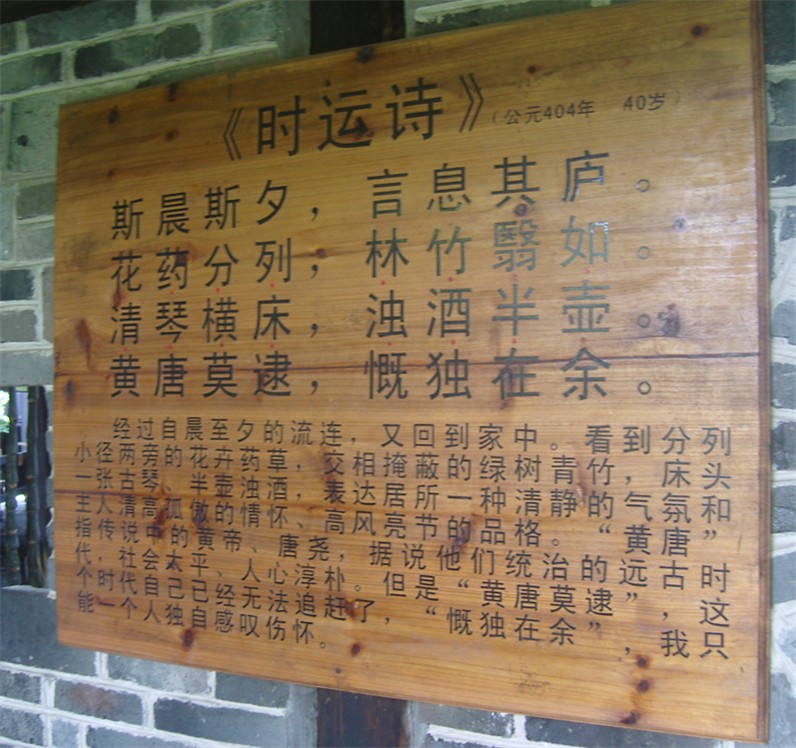 《时运诗》（公元404年 40岁）
斯晨斯夕，言息其庐。
花药分列，林竹翳如。
清琴横床，浊酒半壶。
黄唐莫逮，慨独在余。
经过自晨至夕的流连，又回到家中。看到分列
小径两旁的花卉药草，交相掩蔽的绿树青竹，床头
一张古琴、半壶浊酒，表达居所一种清静的气氛和
主人清高孤傲的情怀、高风亮节的品格。“黄唐”
指传说中的黄帝、唐尧，据说他们统治的远古时
代，社会太平、人心淳朴。但是“黄唐莫逮”，这
个时代自己已经无法追赶了，“慨独在余”，我只
能一个人独自感叹伤怀。